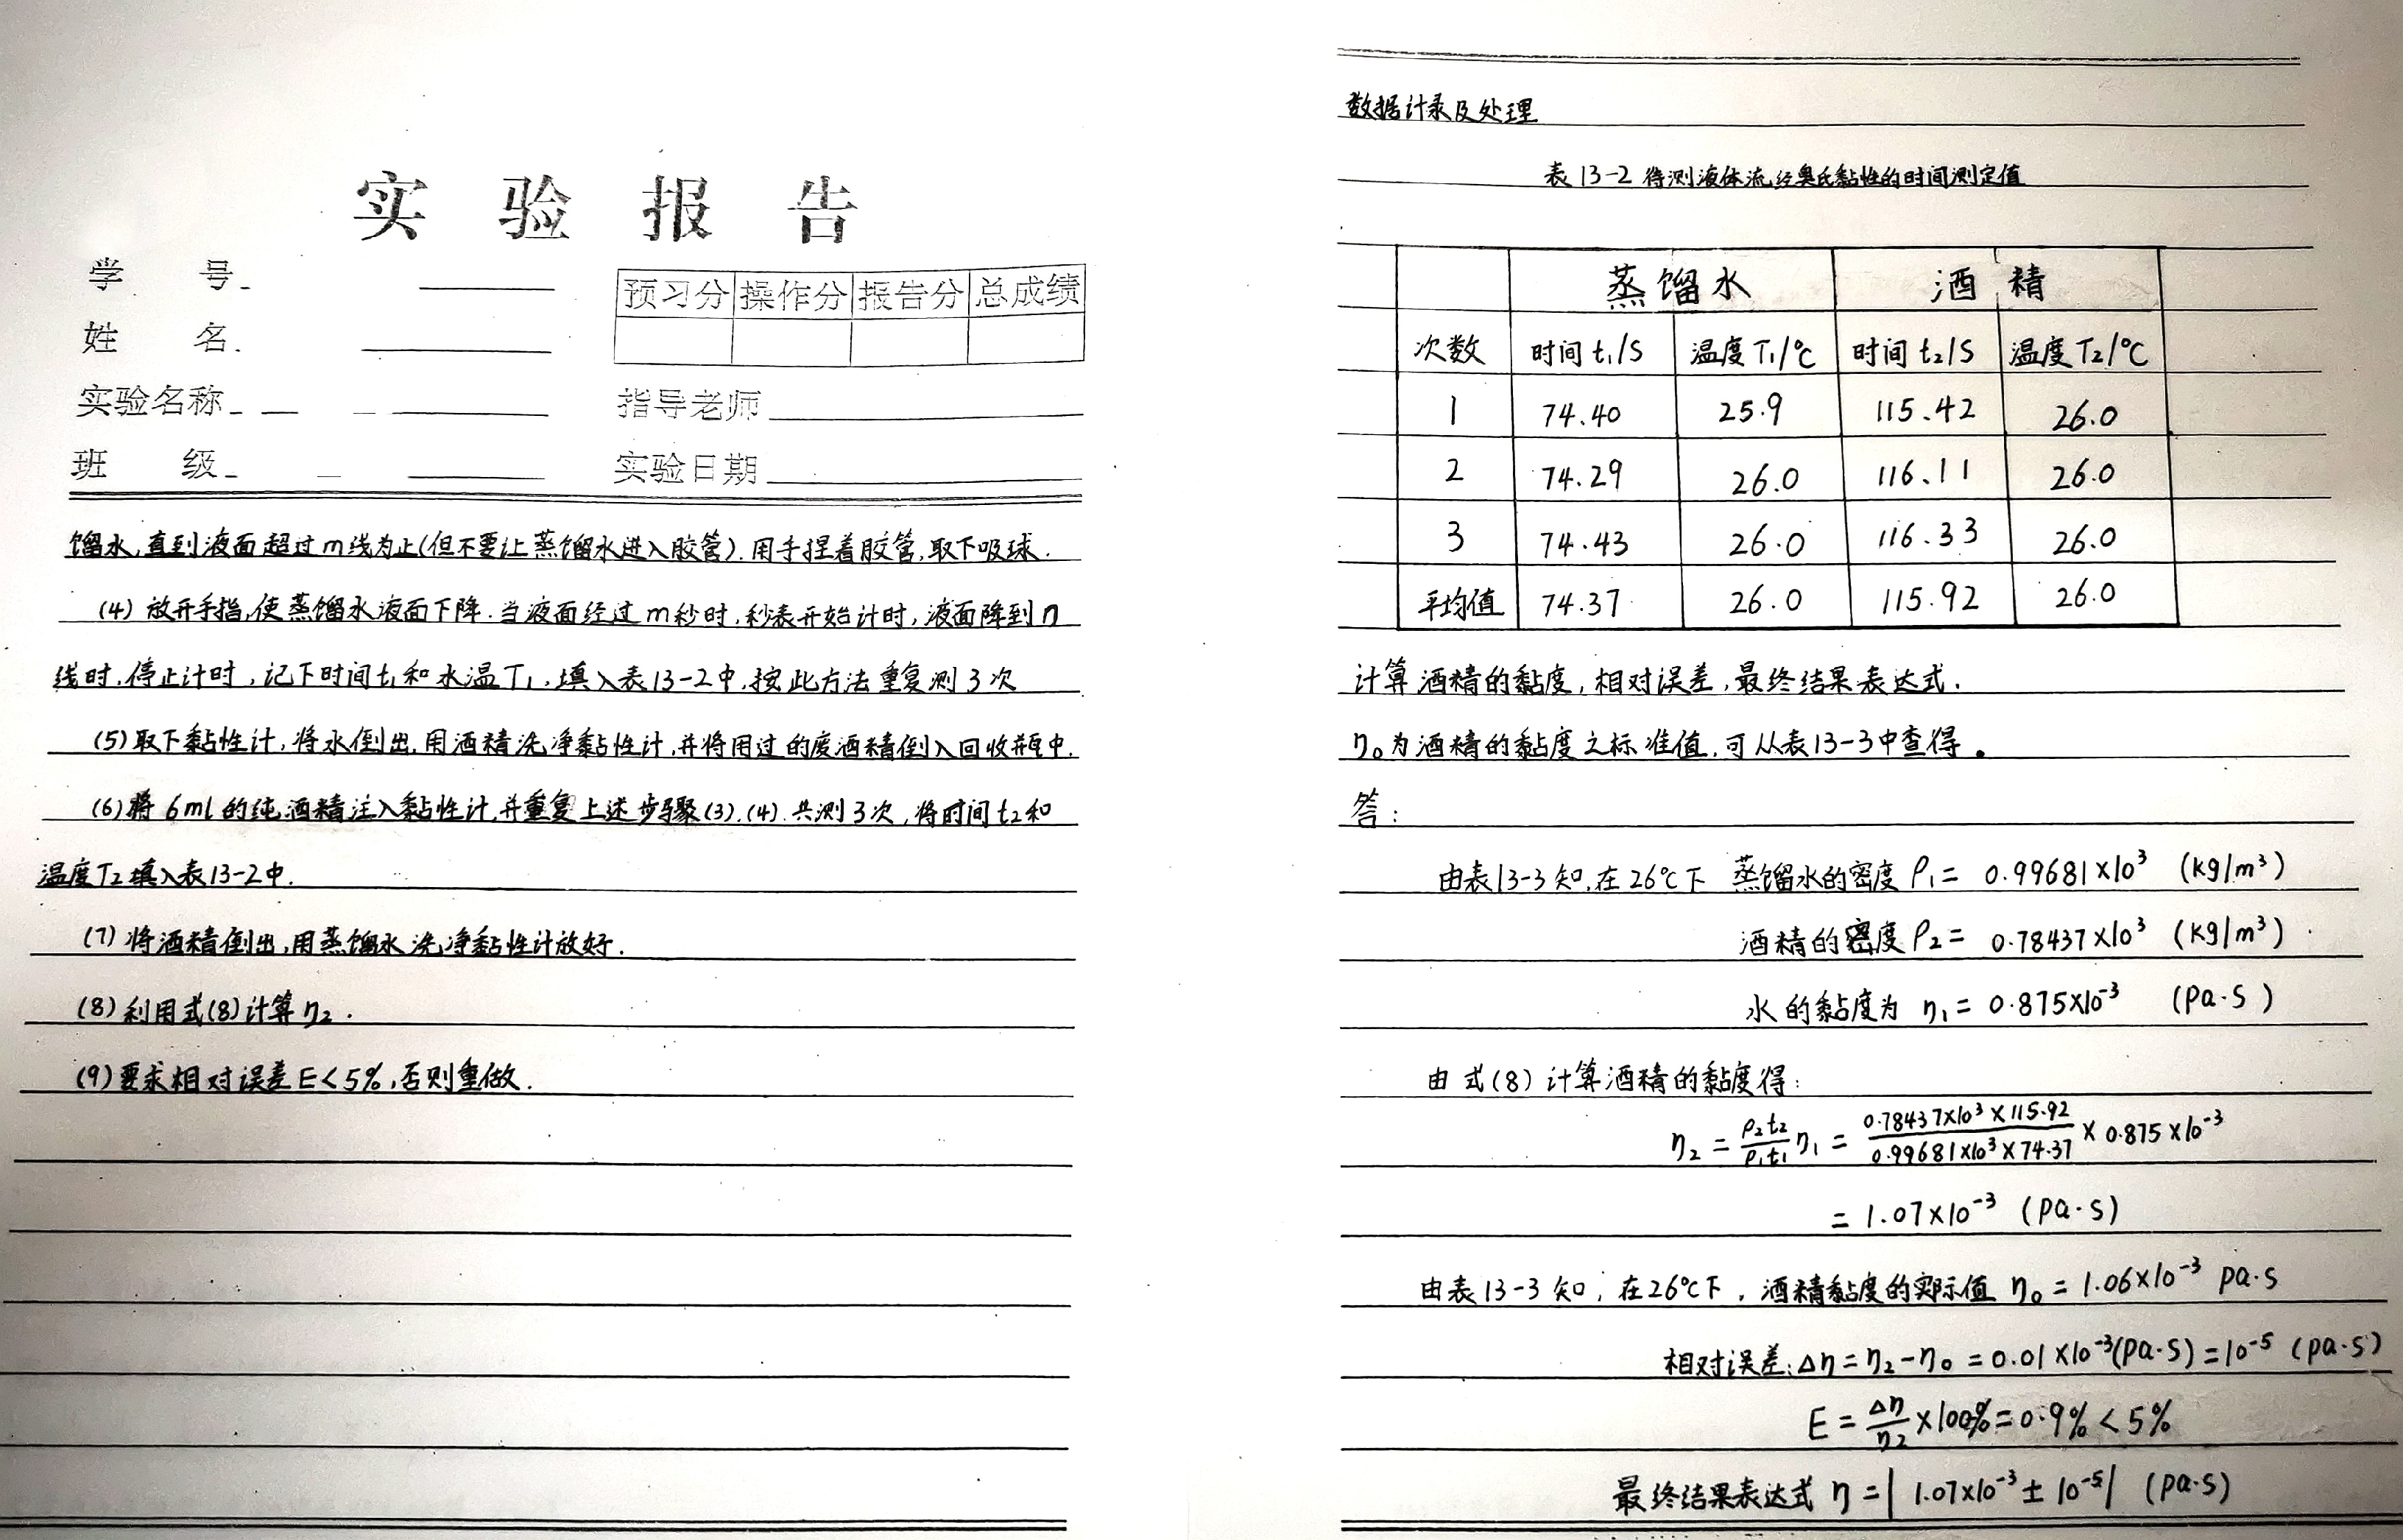 实验报告
学 号
姓 名
实验名称
班 级
预习分 操作分 报告分 总成绩
指导老师
实验日期
馏水,直到液面超过m线为止(但不要让蒸馏水进入胶管).用手捏着胶管,取下吸球.
(4) 放开手指,使蒸馏水液面下降.当液面经过m秒时,秒表开始计时,液面降到n
线时,停止计时,记下时间t₁和水温T₁,填入表13-2中,按此方法重复测3次
(5)取下黏性计,将水倒出,用酒精洗净黏性计,并将用过的废酒精倒入回收瓶中.
(6)将6ml的纯酒精注入黏性计,并重复上述步骤(3).(4).共测3次,将时间t₂和
温度T₂填入表13-2中.
(7)将酒精倒出,用蒸馏水洗净黏性计放好.
(8)利用式(8)计算η₂.
(9)要求相对误差E<5%,否则重做.
数据计录及处理
表13-2 待测液体流经奥氏黏性的时间测定值
蒸馏水 酒精
次数 时间t₁/S 温度T₁/℃ 时间t₂/S 温度T₂/℃
1 74.40 25.9 115.42 26.0
2 74.29 26.0 116.11 26.0
3 74.43 26.0 116.33 26.0
平均值 74.37 26.0 115.92 26.0
计算酒精的黏度,相对误差,最终结果表达式.
η₀为酒精的黏度之标准值,可从表13-3中查得。
答:
由表13-3知,在26℃下 蒸馏水的密度ρ₁= 0.99681×10³ (kg/m³)
酒精的密度ρ₂= 0.78437×10³ (kg/m³)
水的黏度为 η₁= 0.875×10⁻³ (pa·s)
由式(8)计算酒精的黏度得:
η₂ = ρ₂t₂/ρ₁t₁ η₁ = 0.78437×10³×115.92/0.99681×10³×74.37 × 0.875×10⁻³
= 1.07×10⁻³ (pa·s)
由表13-3知,在26℃下,酒精黏度的实际值 η₀ = 1.06×10⁻³ pa·s
相对误差:Δη=η₂-η₀ =0.01×10⁻³(pa·s)=10⁻⁵ (pa·s)
E = Δη/η₂ ×100%=0.9% < 5%
最终结果表达式 η=| 1.07×10⁻³ ± 10⁻⁵| (pa·s)